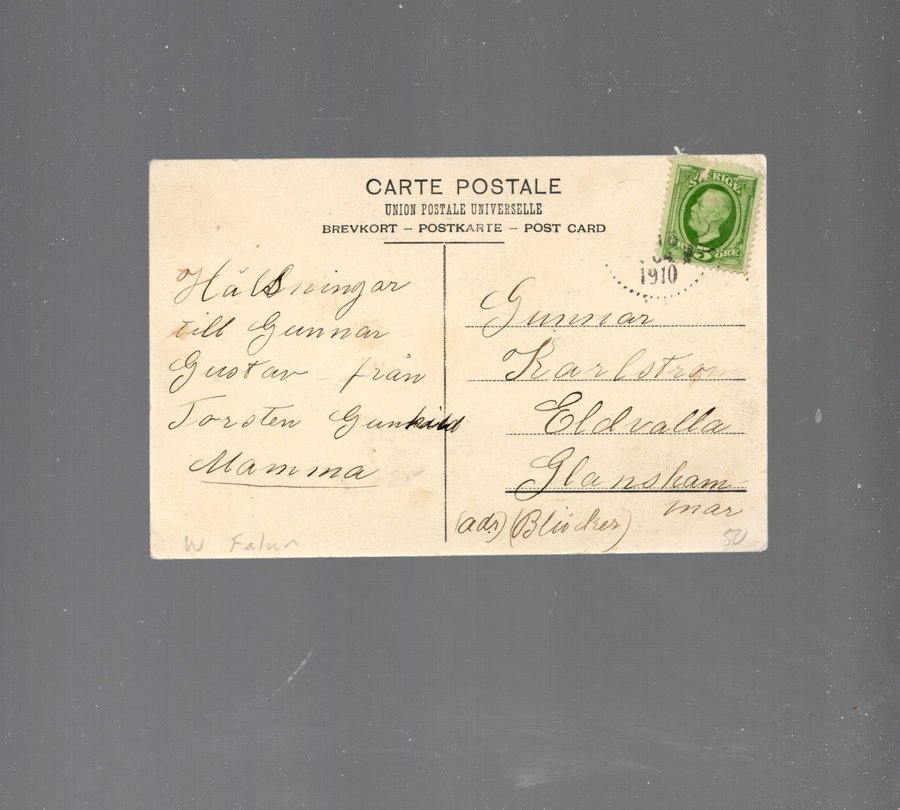 CARTE POSTALE
UNION POSTALE UNIVERSELLE
BREVKORT – POSTKARTE – POST CARD
SVERIGE
5 ÖRE
1910
Hälsningar
till Gunnar
Gustav från
Torsten Gunhild
Mamma
Gunnar
Karlstrom
Eldvalla
Glansham-
mar
(adr) (Blücker)
W Falun
50